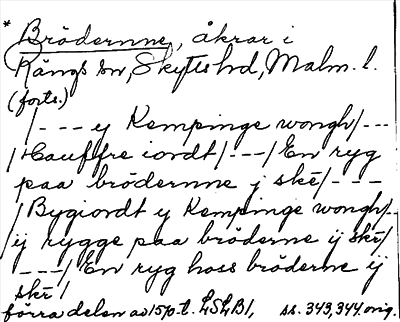 * Brödernne, åkrar i
Kängs sn, Skytts hd, Malm. l.
(forts.)
/--- ij Kempinge wongh/---
/Hauffre iordt/---/En ryg
paa brödernne j skē/---
/Bygiordt ij Kempinge wongh/-
ij rygge paa bröderne ij skē/
---/En ryg hoss bröderne ij
skē/
förra delen av 15/0-t. LSLB1, ss. 343, 344 orig.